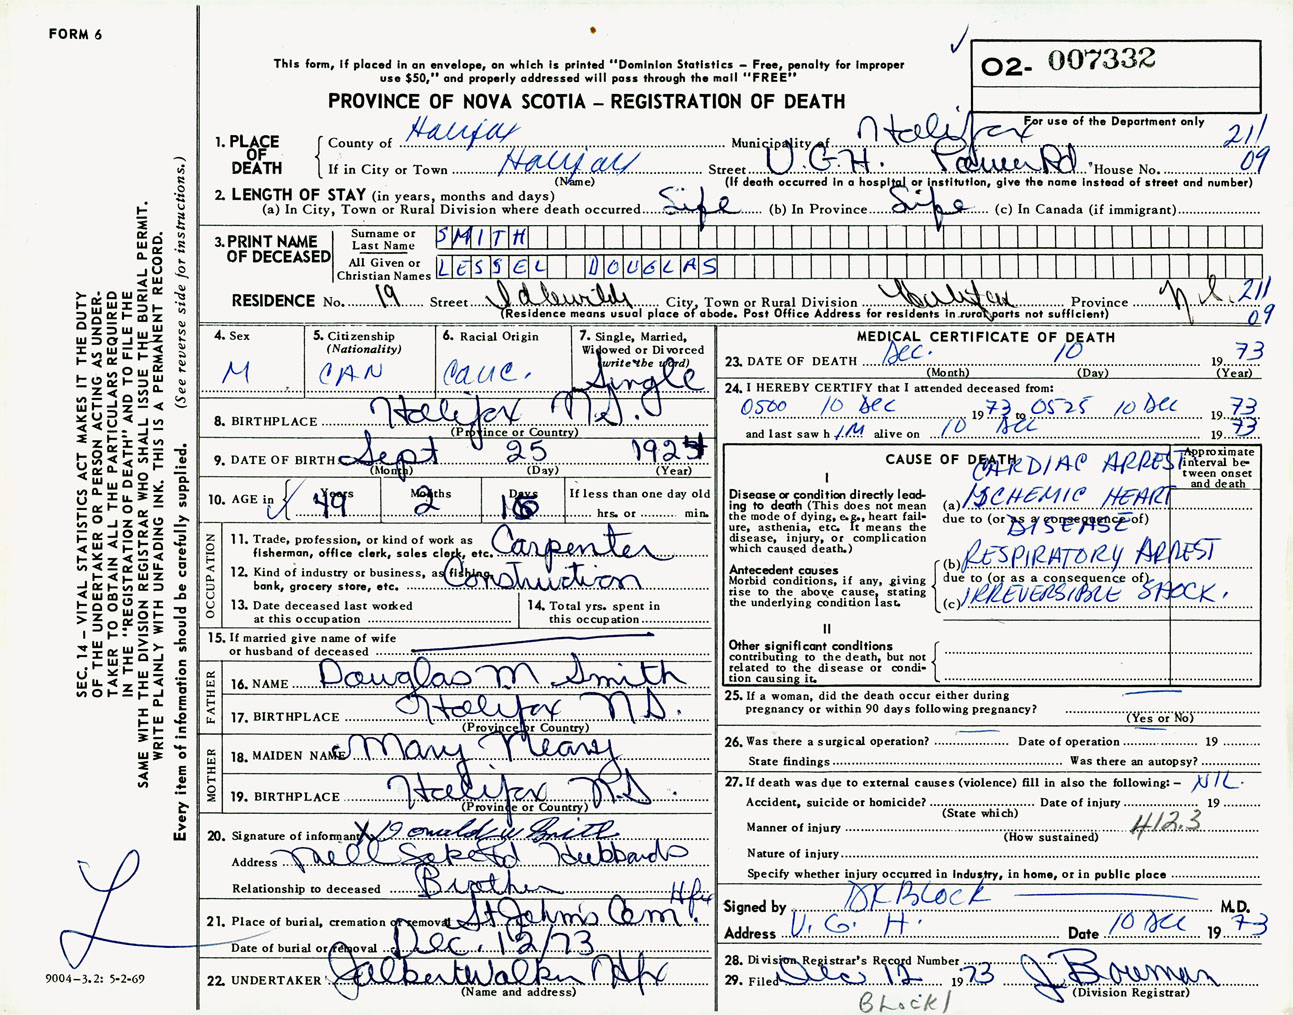 FORM 6
This form, if placed in an envelope, on which is printed "Dominion Statistics – Free, penalty for improper
use $50," and properly addressed will pass through the mail "FREE"
PROVINCE OF NOVA SCOTIA – REGISTRATION OF DEATH
02- 007332
For use of the Department only
211
09
1. PLACE OF DEATH
County of Halifax Municipality of Halifax
If in City or Town Halifax Street V.G.H. Rd. House No.
(Name) (If death occurred in a hospital or institution, give the name instead of street and number)
2. LENGTH OF STAY (in years, months and days)
(a) In City, Town or Rural Division where death occurred Life (b) In Province Life (c) In Canada (if immigrant)
3. PRINT NAME OF DECEASED
Surname or Last Name SMITH
All Given or Christian Names LESSEL DOUGLAS
RESIDENCE No. 19 Street City, Town or Rural Division Halifax Province N.S. 211
(Residence means usual place of abode. Post Office Address for residents in rural parts not sufficient) 09
4. Sex M
5. Citizenship (Nationality) CAN
6. Racial Origin CAUC.
7. Single, Married, Widowed or Divorced (write the word) Single
8. BIRTHPLACE Halifax N.S.
(Province or Country)
9. DATE OF BIRTH Sept 25 1924
(Month) (Day) (Year)
10. AGE in Years 49 Months 2 Days If less than one day old hrs. or min.
OCCUPATION
11. Trade, profession, or kind of work as fisherman, office clerk, sales clerk, etc. Carpenter
12. Kind of industry or business, as fishing, bank, grocery store, etc. Construction
13. Date deceased last worked at this occupation
14. Total yrs. spent in this occupation
15. If married give name of wife or husband of deceased
FATHER
16. NAME Douglas M. Smith
17. BIRTHPLACE Halifax N.S.
(Province or Country)
MOTHER
18. MAIDEN NAME Mary Neary
19. BIRTHPLACE Halifax N.S.
(Province or Country)
20. Signature of informant X Donald W Smith
Address Mill Lake Rd Hubbards
Relationship to deceased Brother
21. Place of burial, cremation or removal St John's Cem. Hfx
Date of burial or removal Dec. 12/73
22. UNDERTAKER J Albert Walker Hfx
(Name and address)
MEDICAL CERTIFICATE OF DEATH
23. DATE OF DEATH Dec. 10 1973
(Month) (Day) (Year)
24. I HEREBY CERTIFY that I attended deceased from:
0500 10 DEC 1973 to 0525 10 DEC 1973
and last saw h IM alive on 10 DEC 1973
CAUSE OF DEATH
Approximate interval between onset and death
I
Disease or condition directly leading to death (This does not mean the mode of dying, e.g., heart failure, asthenia, etc. It means the disease, injury, or complication which caused death.)
CARDIAC ARREST
(a) ISCHEMIC HEART
due to (or as a consequence of)
DISEASE
(b) RESPIRATORY ARREST
Antecedent causes
Morbid conditions, if any, giving rise to the above cause, stating the underlying condition last.
due to (or as a consequence of)
(c) IRREVERSIBLE SHOCK.
II
Other significant conditions contributing to the death, but not related to the disease or condition causing it.
25. If a woman, did the death occur either during pregnancy or within 90 days following pregnancy?
(Yes or No)
26. Was there a surgical operation? Date of operation 19
State findings Was there an autopsy?
27. If death was due to external causes (violence) fill in also the following: – NIL.
Accident, suicide or homicide? Date of injury 19
(State which)
Manner of injury 412.3
(How sustained)
Nature of injury
Specify whether injury occurred in industry, in home, or in public place
Signed by DK BLOCK M.D.
Address V. G. H. Date 10 DEC 1973
28. Division Registrar's Record Number
29. Filed Dec 12 1973 J Bowman
(Division Registrar)
BLOCK /
SEC. 14 – VITAL STATISTICS ACT MAKES IT THE DUTY
OF THE UNDERTAKER OR PERSON ACTING AS UNDER-
TAKER TO OBTAIN ALL THE PARTICULARS REQUIRED
IN THE "REGISTRATION OF DEATH" AND TO FILE THE
SAME WITH THE DIVISION REGISTRAR WHO SHALL ISSUE THE BURIAL PERMIT.
WRITE PLAINLY WITH UNFADING INK. THIS IS A PERMANENT RECORD.
Every item of information should be carefully supplied. (See reverse side for instructions.)
9004–3.2: 5-2-69